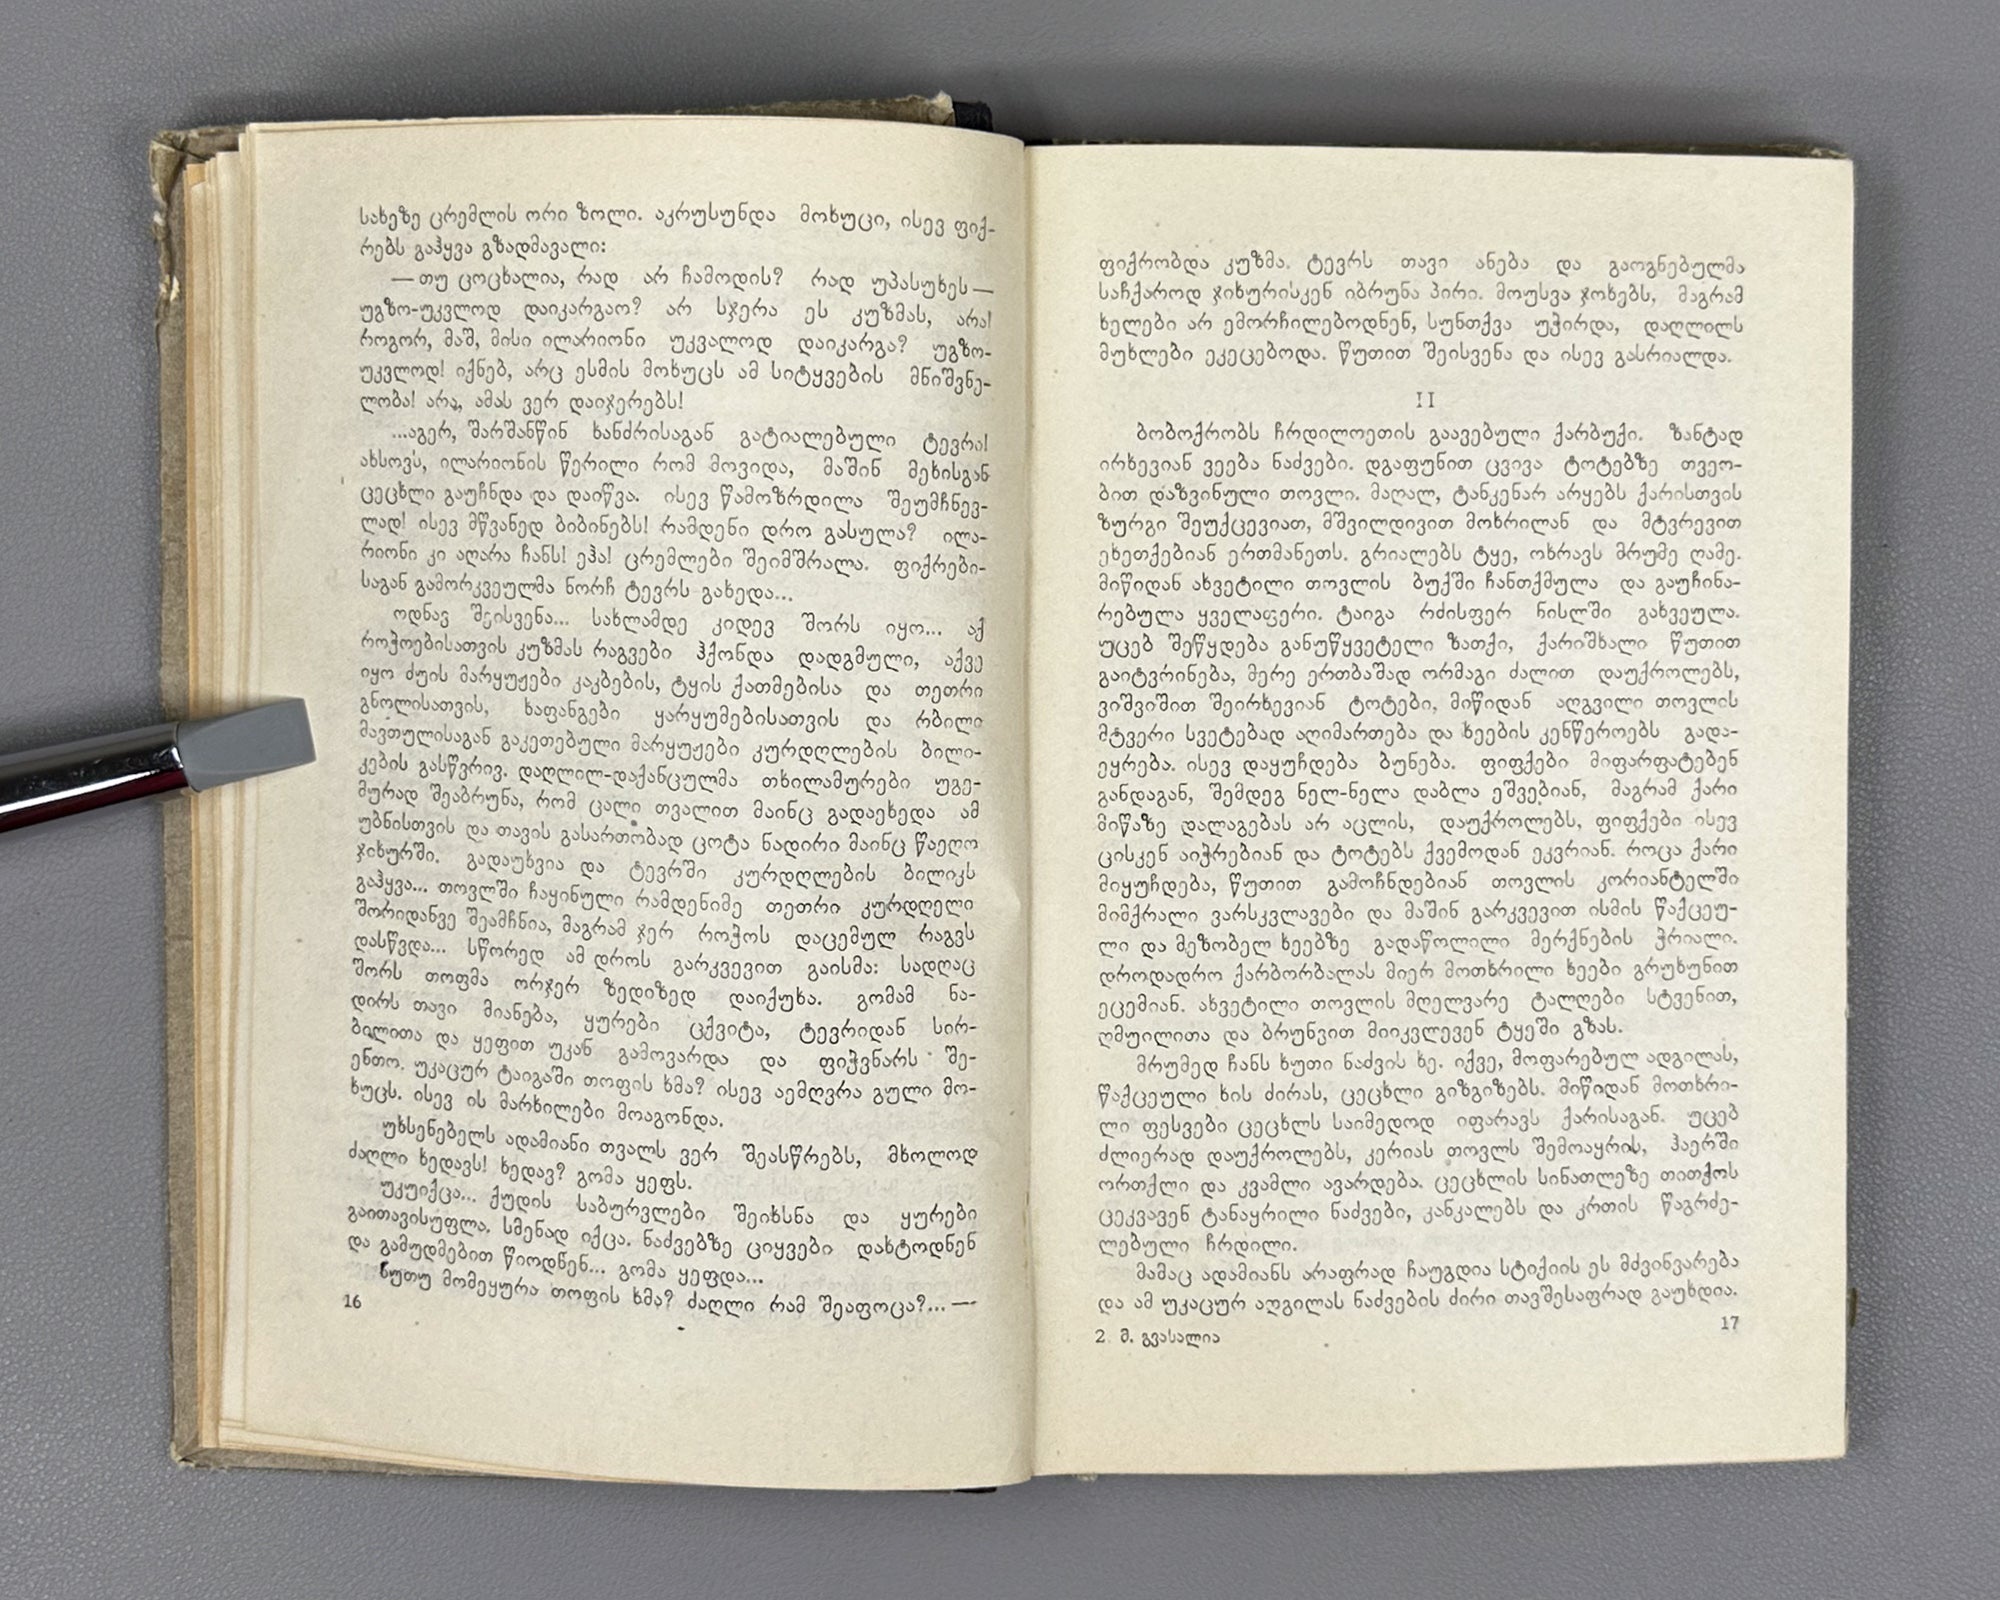 სახეზე ცრემლის ორი ზოლი. აკრუსუნდა მოხუცი, ისევ ფიქ-
რებს გაჰყვა გზადმავალი:
— თუ ცოცხალია, რად არ ჩამოდის? რად უპასუხეს —
უგზო-უკვლოდ დაიკარგაო? არ სჯერა ეს კუზმას, არა!
როგორ, მაშ, მისი ილარიონი უკვალოდ დაიკარგა? უგზო-
უკვლოდ! იქნებ, არც ესმის მოხუცს ამ სიტყვების მნიშვნე-
ლობა! არა, ამას ვერ დაიჯერებს!
...აგერ, შარშანწინ ხანძრისაგან გატიალებული ტევრი!
ახსოვს, ილარიონის წერილი რომ მოვიდა, მაშინ მეხისგან
ცეცხლი გაუჩნდა და დაიწვა. ისევ წამოზრდილა შეუმჩნევ-
ლად! ისევ მწვანედ ბიბინებს! რამდენი დრო გასულა? ილა-
რიონი კი აღარა ჩანს! ეჰა! ცრემლები შეიმშრალა. ფიქრები-
საგან გამორკვეულმა ნორჩ ტევრს გახედა...
ოდნავ შეისვენა... სახლამდე კიდევ შორს იყო... აქ
როჭოებისათვის კუზმას რაგვები ჰქონდა დადგმული, აქვე
იყო ძუის მარყუჟები კაკბების, ტყის ქათმებისა და თეთრი
გნოლისათვის, ხაფანგები ყარყუმებისათვის და რბილი
მავთულისაგან გაკეთებული მარყუჟები კურდღლების ბილი-
კების გასწვრივ. დაღლილ-დაქანცულმა თხილამურები უგე-
მურად შეაბრუნა, რომ ცალი თვალით მაინც გადაეხედა ამ
უბნისთვის და თავის გასართობად ცოტა ნადირი მაინც წაეღო
ჯიხურში. გადაუხვია და ტევრში კურდღლების ბილიკს
გაჰყვა... თოვლში ჩაყინული რამდენიმე თეთრი კურდღელი
შორიდანვე შეამჩნია, მაგრამ ჯერ როჭოს დაცემულ რაგვს
დასწვდა... სწორედ ამ დროს გარკვევით გაისმა: სადღაც
შორს თოფმა ორჯერ ზედიზედ დაიქუხა. გომამ ნა-
დირს თავი მიანება, ყურები ცქვიტა, ტევრიდან სირ-
ბილითა და ყეფით უკან გამოვარდა და ფიჭვნარს შე-
ენთო. უკაცურ ტაიგაში თოფის ხმა? ისევ აემღვრა გული მო-
ხუცს. ისევ ის მარხილები მოაგონდა.
უხსენებელს ადამიანი თვალს ვერ შეასწრებს, მხოლოდ
ძაღლი ხედავს! ხედავ? გომა ყეფს.
უკუიქცა... ქუდის საბურვლები შეიხსნა და ყურები
გაითავისუფლა. სმენად იქცა. ნაძვებზე ციყვები დახტოდნენ
და გამუდმებით წიოდნენ... გომა ყეფდა...
ხუთუ მომეყურა თოფის ხმა? ძაღლი რამ შეაფოცა?... —
16
ფიქრობდა კუზმა. ტევრს თავი ანება და გაოგნებულმა
საჩქაროდ ჯიხურისკენ იბრუნა პირი. მოუსვა ჯოხებს, მაგრამ
ხელები არ ემორჩილებოდნენ, სუნთქვა უჭირდა, დაღლილს
მუხლები ეკეცებოდა. წუთით შეისვენა და ისევ გასრიალდა.
II
ბობოქრობს ჩრდილოეთის გაავებული ქარბუქი. ზანტად
ირხევიან ვეება ნაძვები. დგაფუნით ცვივა ტოტებზე თვეო-
ბით დაზვინული თოვლი. მაღალ, ტანკენარ არყებს ქარისთვის
ზურგი შეუქცევიათ, მშვილდივით მოხრილან და მტვრევით
ეხეთქებიან ერთმანეთს. გრიალებს ტყე, ოხრავს მრუმე ღამე.
მიწიდან ახვეტილი თოვლის ბუქში ჩანთქმულა და გაუჩინა-
რებულა ყველაფერი. ტაიგა რძისფერ ნისლში გახვეულა.
უცებ შეწყდება განუწყვეტელი ზათქი, ქარიშხალი წუთით
გაიტვრინება, მერე ერთბაშად ორმაგი ძალით დაუქროლებს,
ვიშვიშით შეირხევიან ტოტები, მიწიდან აღგვილი თოვლის
მტვერი სვეტებად აღიმართება და ხეების კენწეროებს გადა-
ეყრება. ისევ დაყუჩდება ბუნება. ფიფქები მიფარფატებენ
განდაგან, შემდეგ ნელ-ნელა დაბლა ეშვებიან, მაგრამ ქარი
მიწაზე დალაგებას არ აცლის, დაუქროლებს, ფიფქები ისევ
ცისკენ აიჭრებიან და ტოტებს ქვემოდან ეკვრიან. როცა ქარი
მიყუჩდება, წუთით გამოჩნდებიან თოვლის კორიანტელში
მიმქრალი ვარსკვლავები და მაშინ გარკვევით ისმის წაქცეუ-
ლი და მეზობელ ხეებზე გადაწოლილი მერქნების ჭრიალი.
დროდადრო ქარბორბალას მიერ მოთხრილი ხეები გრუხუნით
ეცემიან. ახვეტილი თოვლის მღელვარე ტალღები სტვენით,
ღმუილითა და ბრუნვით მიიკვლევენ ტყეში გზას.
მრუმედ ჩანს ხუთი ნაძვის ხე. იქვე, მოფარებულ ადგილას,
წაქცეული ხის ძირას, ცეცხლი გიზგიზებს. მიწიდან მოთხრი-
ლი ფესვები ცეცხლს საიმედოდ იფარავს ქარისაგან. უცებ
ძლიერად დაუქროლებს, კერიას თოვლს შემოაყრის, ჰაერში
ორთქლი და კვამლი ავარდება. ცეცხლის სინათლეზე თითქოს
ცეკვავენ ტანაყრილი ნაძვები, კანკალებს და კრთის წაგრძე-
ლებული ჩრდილი.
მამაც ადამიანს არაფრად ჩაუგდია სტიქიის ეს მძვინვარება
და ამ უკაცურ აღგილას ნაძვების ძირი თავშესაფრად გაუხდია.
2 შ. გვასალია
17